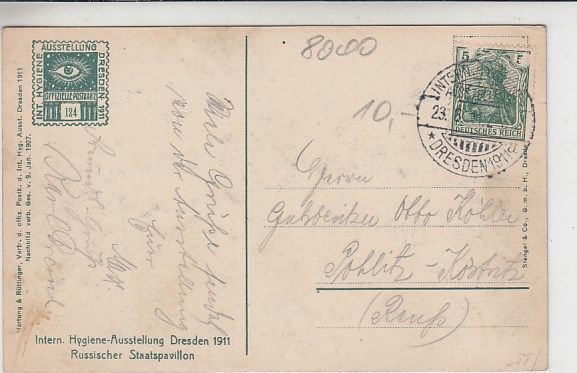 INT. HYGIENE
AUSSTELLUNG
DRESDEN 1911
OFFIZIELLE POSTKARTE
124
Hartung & Rüttinger, Vertr. d. offiz. Postk. d. Int. Hyg. Ausst. Dresden 1911
Nachbild. verb. Ges. v. 9. Jan. 1907.
8000
10,-
5
DEUTSCHES REICH
INTERN.
23.
DRESDEN 1911
Viele Grüße sendet
von der Ausstellung
Euer
Max
Herrn
Gutsbesitzer Otto Köhler
Pohlitz-Köstritz
(Reuß)
Stengel & Co., G. m. b. H., Dresden
Intern. Hygiene-Ausstellung Dresden 1911
Russischer Staatspavillon